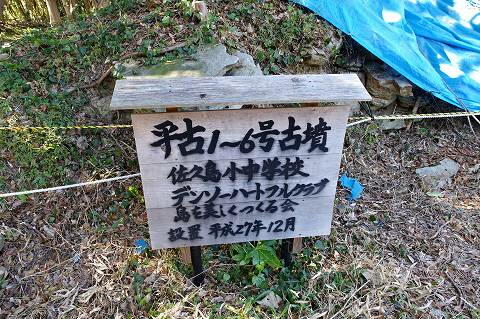 平古1～6号古墳
佐久島小中学校
デンソーハートフルクラブ
島を美しくつくる会
設置 平成27年12月